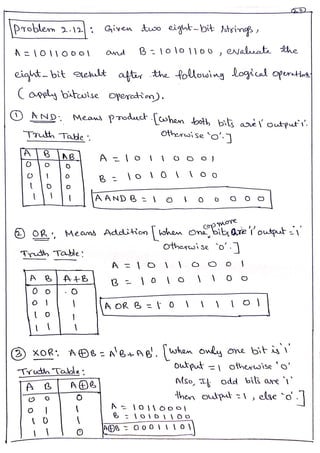 Problem 2.12: Given two eight-bit strings,
A = 10110001 and B = 10101100, evaluate the
eight-bit result after the following logical operations
(apply bitwise operation).
① AND: Means product. [When both bits are '1' output '1'.
Otherwise '0'.]
Truth Table:
A B AB
0 0 0
0 1 0
1 0 0
1 1 1
A = 1 0 1 1 0 0 0 1
B = 1 0 1 0 1 1 0 0
A AND B = 1 0 1 0 0 0 0 0
② OR: Means Addition [When one or more bits are '1' output = '1'
Otherwise '0'.]
Truth Table:
A B A+B
0 0 0
0 1 1
1 0 1
1 1 1
A = 1 0 1 1 0 0 0 1
B = 1 0 1 0 1 1 0 0
A OR B = 1 0 1 1 1 1 0 1
③ XOR: A⊕B = A'B + AB'. [When only one bit is '1'
output = 1 otherwise '0'
Also, If odd bits are '1'
then output = 1, else '0'.]
Truth Table:
A B A⊕B
0 0 0
0 1 1
1 0 1
1 1 0
A = 10110001
B = 10101100
A⊕B = 00011101